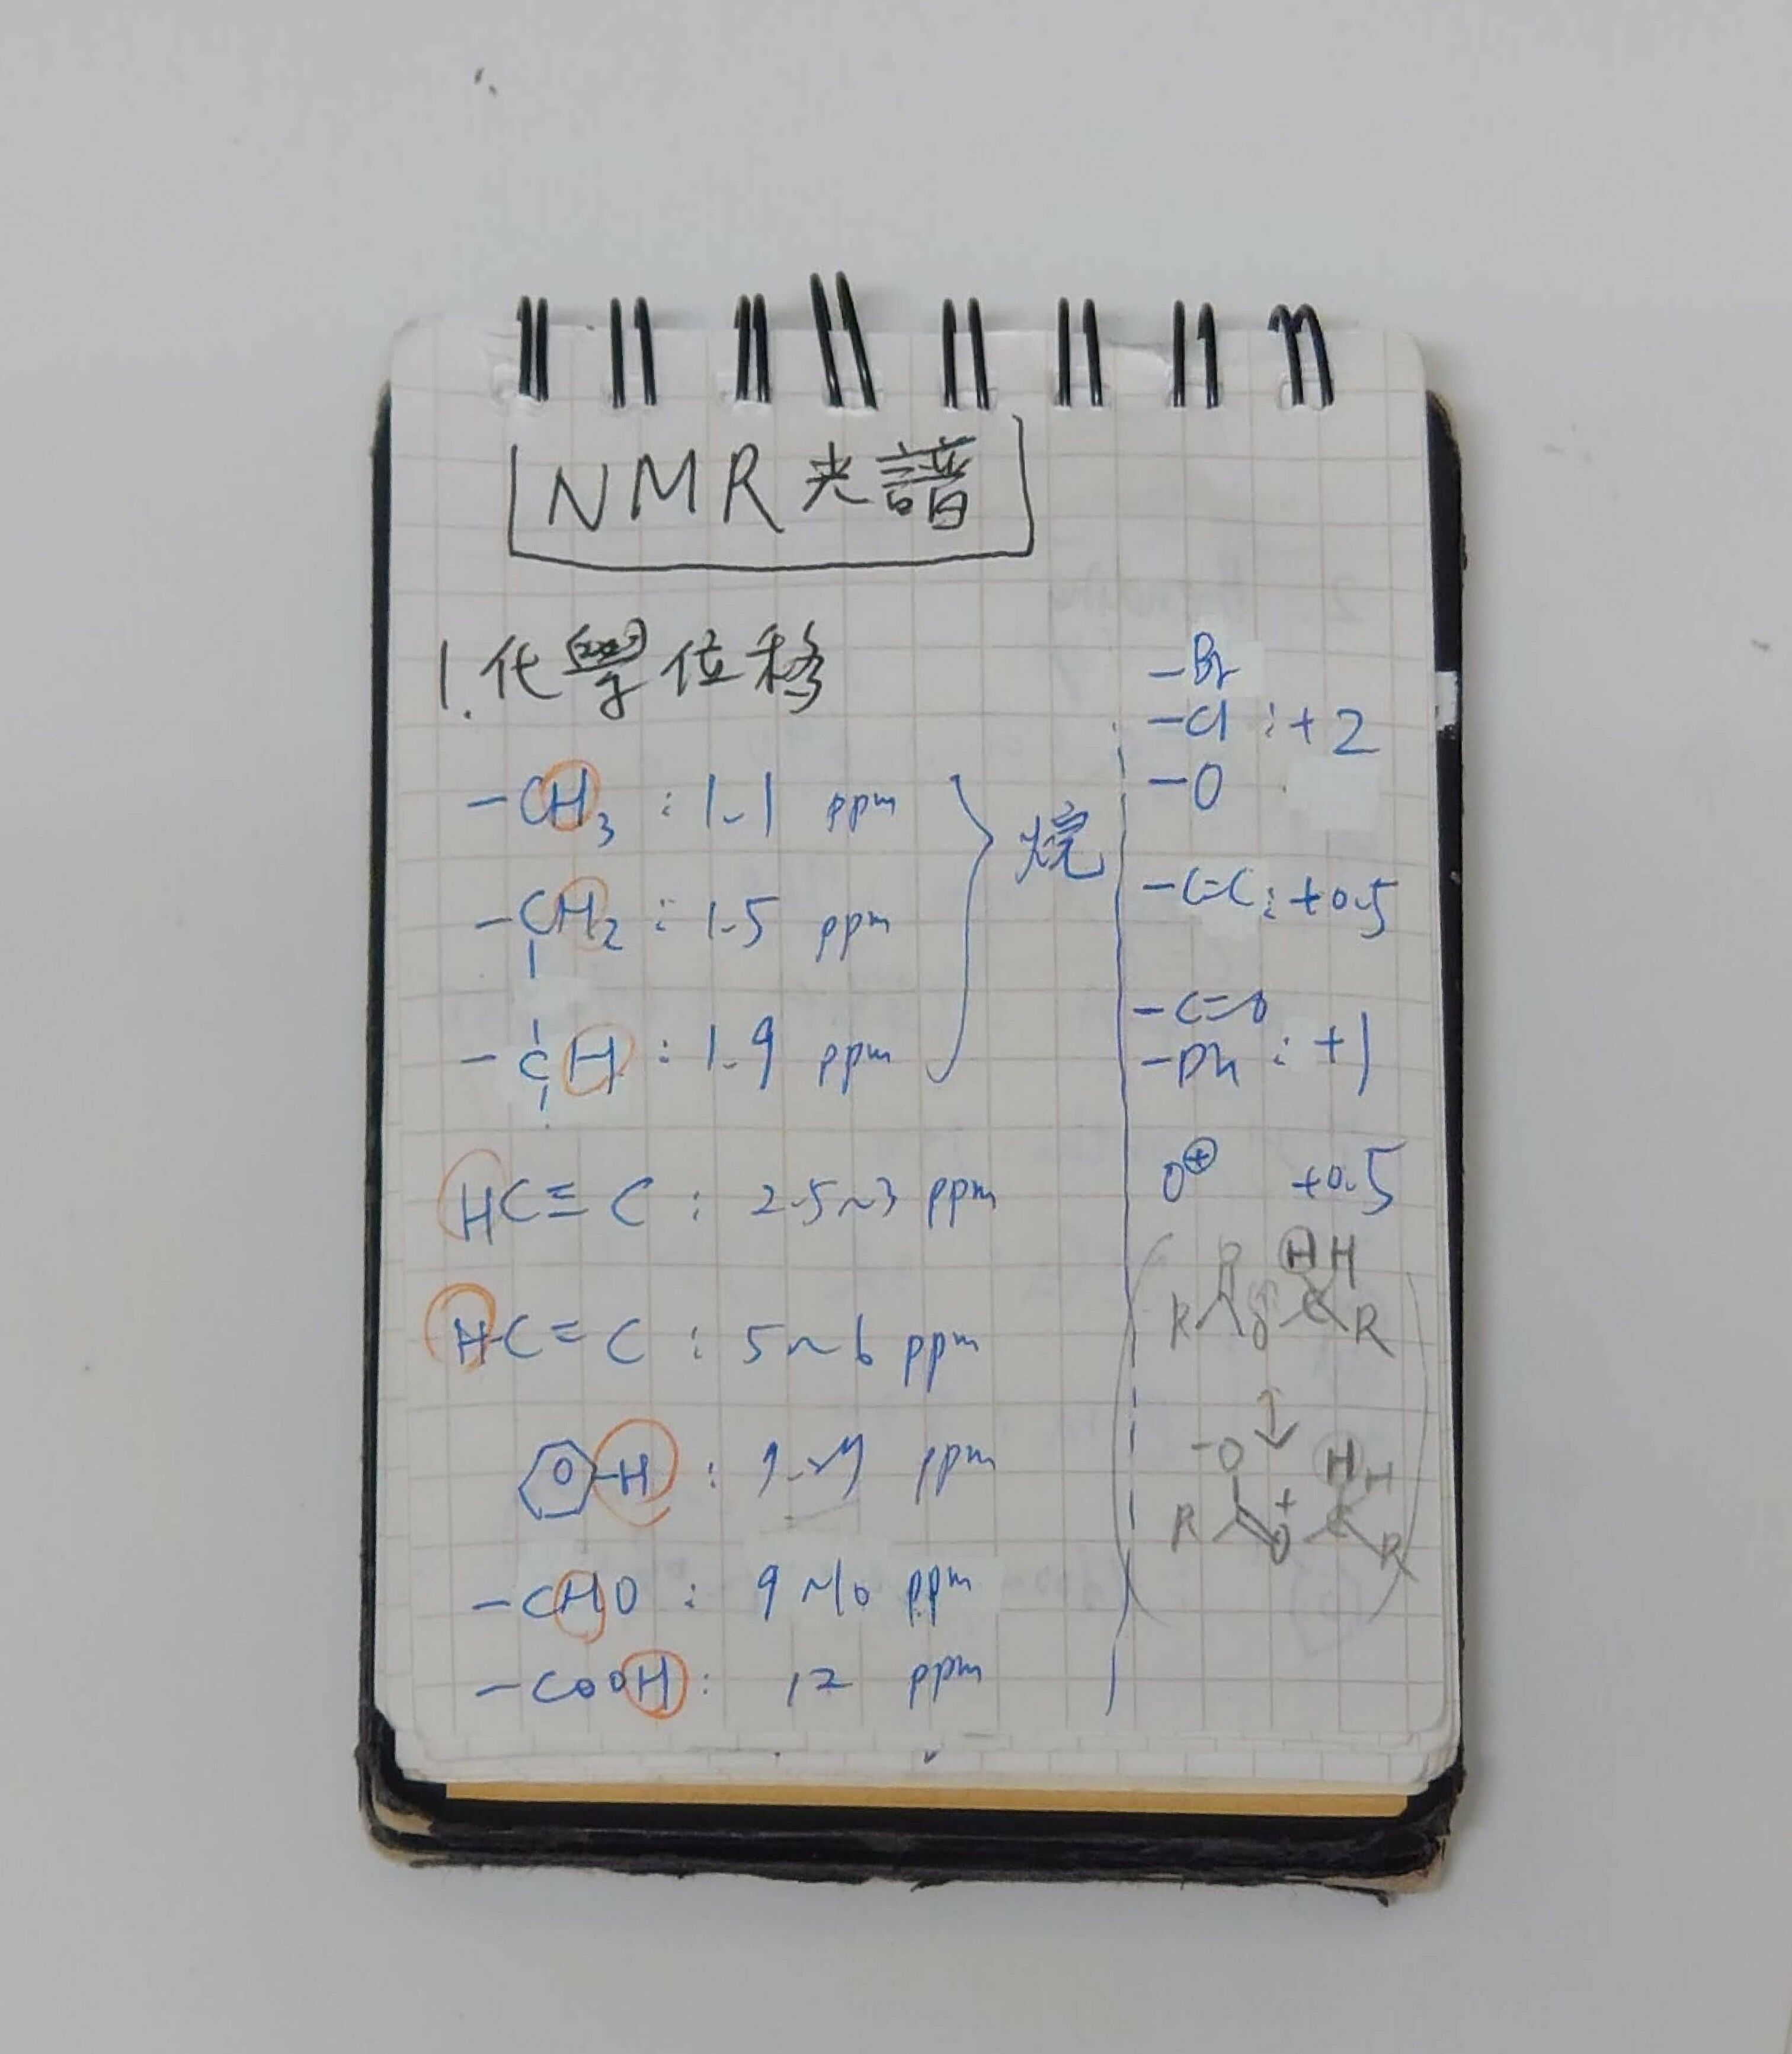 NMR光譜
1.化學位移
-CH3 : 1.1 ppm
-CH2 : 1.5 ppm
-CH : 1.9 ppm
烷
HC≡C : 2.5~3 ppm
HC=C : 5~6 ppm
-H : ppm
-CHO : 9~10 ppm
-COOH : 12 ppm
-Br
-Cl : +2
-O
-C=C : +0.5
-C=O
-Ph : +1
O⊕ +0.5
O H H
R O C R
-O H H
R O + C R